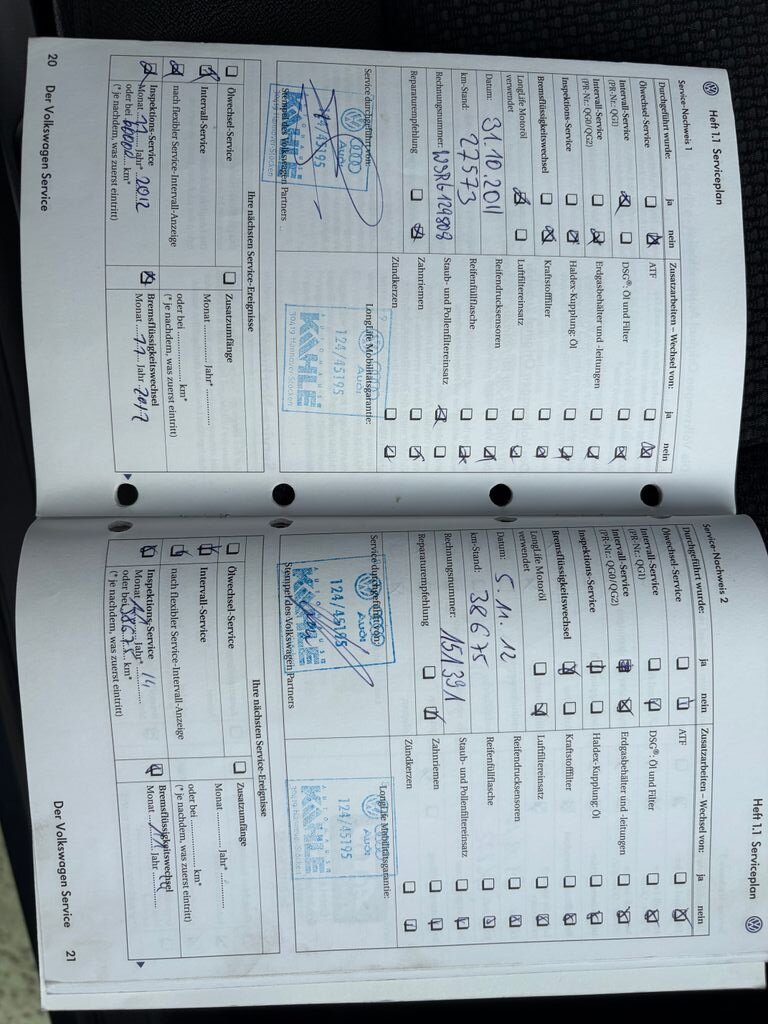 Heft 1.1 Serviceplan
Service-Nachweis 1
Durchgeführt wurde: ja nein
Ölwechsel-Service
Intervall-Service
(PR-Nr.: QG1)
Intervall-Service
(PR-Nr.: QG0/QG2)
Inspektions-Service
Bremsflüssigkeitswechsel
LongLife Motoröl
verwendet
Datum: 31.10.2011
km-Stand: 27573
Rechnungsnummer: WSRG129809
Reparaturempfehlung
Service durchgeführt von:
Audi
124/45195
KAHLE
30419 Hannover-Stöcken
Stempel des Volkswagen Partners
Zusatzarbeiten – Wechsel von: ja nein
ATF
DSG®: Öl und Filter
Erdgasbehälter und -leitungen
Haldex-Kupplung: Öl
Kraftstofffilter
Luftfiltereinsatz
Reifendrucksensoren
Reifenfüllflasche
Staub- und Pollenfiltereinsatz
Zahnriemen
Zündkerzen
LongLife Mobilitätsgarantie:
Audi
124/45195
KAHLE
30419 Hannover-Stöcken
Ihre nächsten Service-Ereignisse
Ölwechsel-Service
Intervall-Service
nach flexibler Service-Intervall-Anzeige
Inspektions-Service
Monat 11 Jahr* 2012
oder bei 60000 km*
(* je nachdem, was zuerst eintritt)
Zusatzumfänge
Monat Jahr*
oder bei km*
(* je nachdem, was zuerst eintritt)
Bremsflüssigkeitswechsel
Monat 11 Jahr 2012
20 Der Volkswagen Service
Heft 1.1 Serviceplan
Service-Nachweis 2
Durchgeführt wurde: ja nein
Ölwechsel-Service
Intervall-Service
(PR-Nr.: QG1)
Intervall-Service
(PR-Nr.: QG0/QG2)
Inspektions-Service
Bremsflüssigkeitswechsel
LongLife Motoröl
verwendet
Datum: 5.11.12
km-Stand: 38675
Rechnungsnummer: 151391
Reparaturempfehlung
Service durchgeführt von:
Audi
124/45195
Stempel des Volkswagen Partners
Zusatzarbeiten – Wechsel von: ja nein
ATF
DSG®: Öl und Filter
Erdgasbehälter und -leitungen
Haldex-Kupplung: Öl
Kraftstofffilter
Luftfiltereinsatz
Reifendrucksensoren
Reifenfüllflasche
Staub- und Pollenfiltereinsatz
Zahnriemen
Zündkerzen
LongLife Mobilitätsgarantie:
Audi
124/45195
KAHLE
30419 Hannover-Stöcken
Ihre nächsten Service-Ereignisse
Ölwechsel-Service
Intervall-Service
nach flexibler Service-Intervall-Anzeige
Inspektions-Service
Monat 11 Jahr* 14
oder bei 38675 km*
(* je nachdem, was zuerst eintritt)
Zusatzumfänge
Monat Jahr*
oder bei km*
(* je nachdem, was zuerst eintritt)
Bremsflüssigkeitswechsel
Monat 11 Jahr 14
Der Volkswagen Service 21